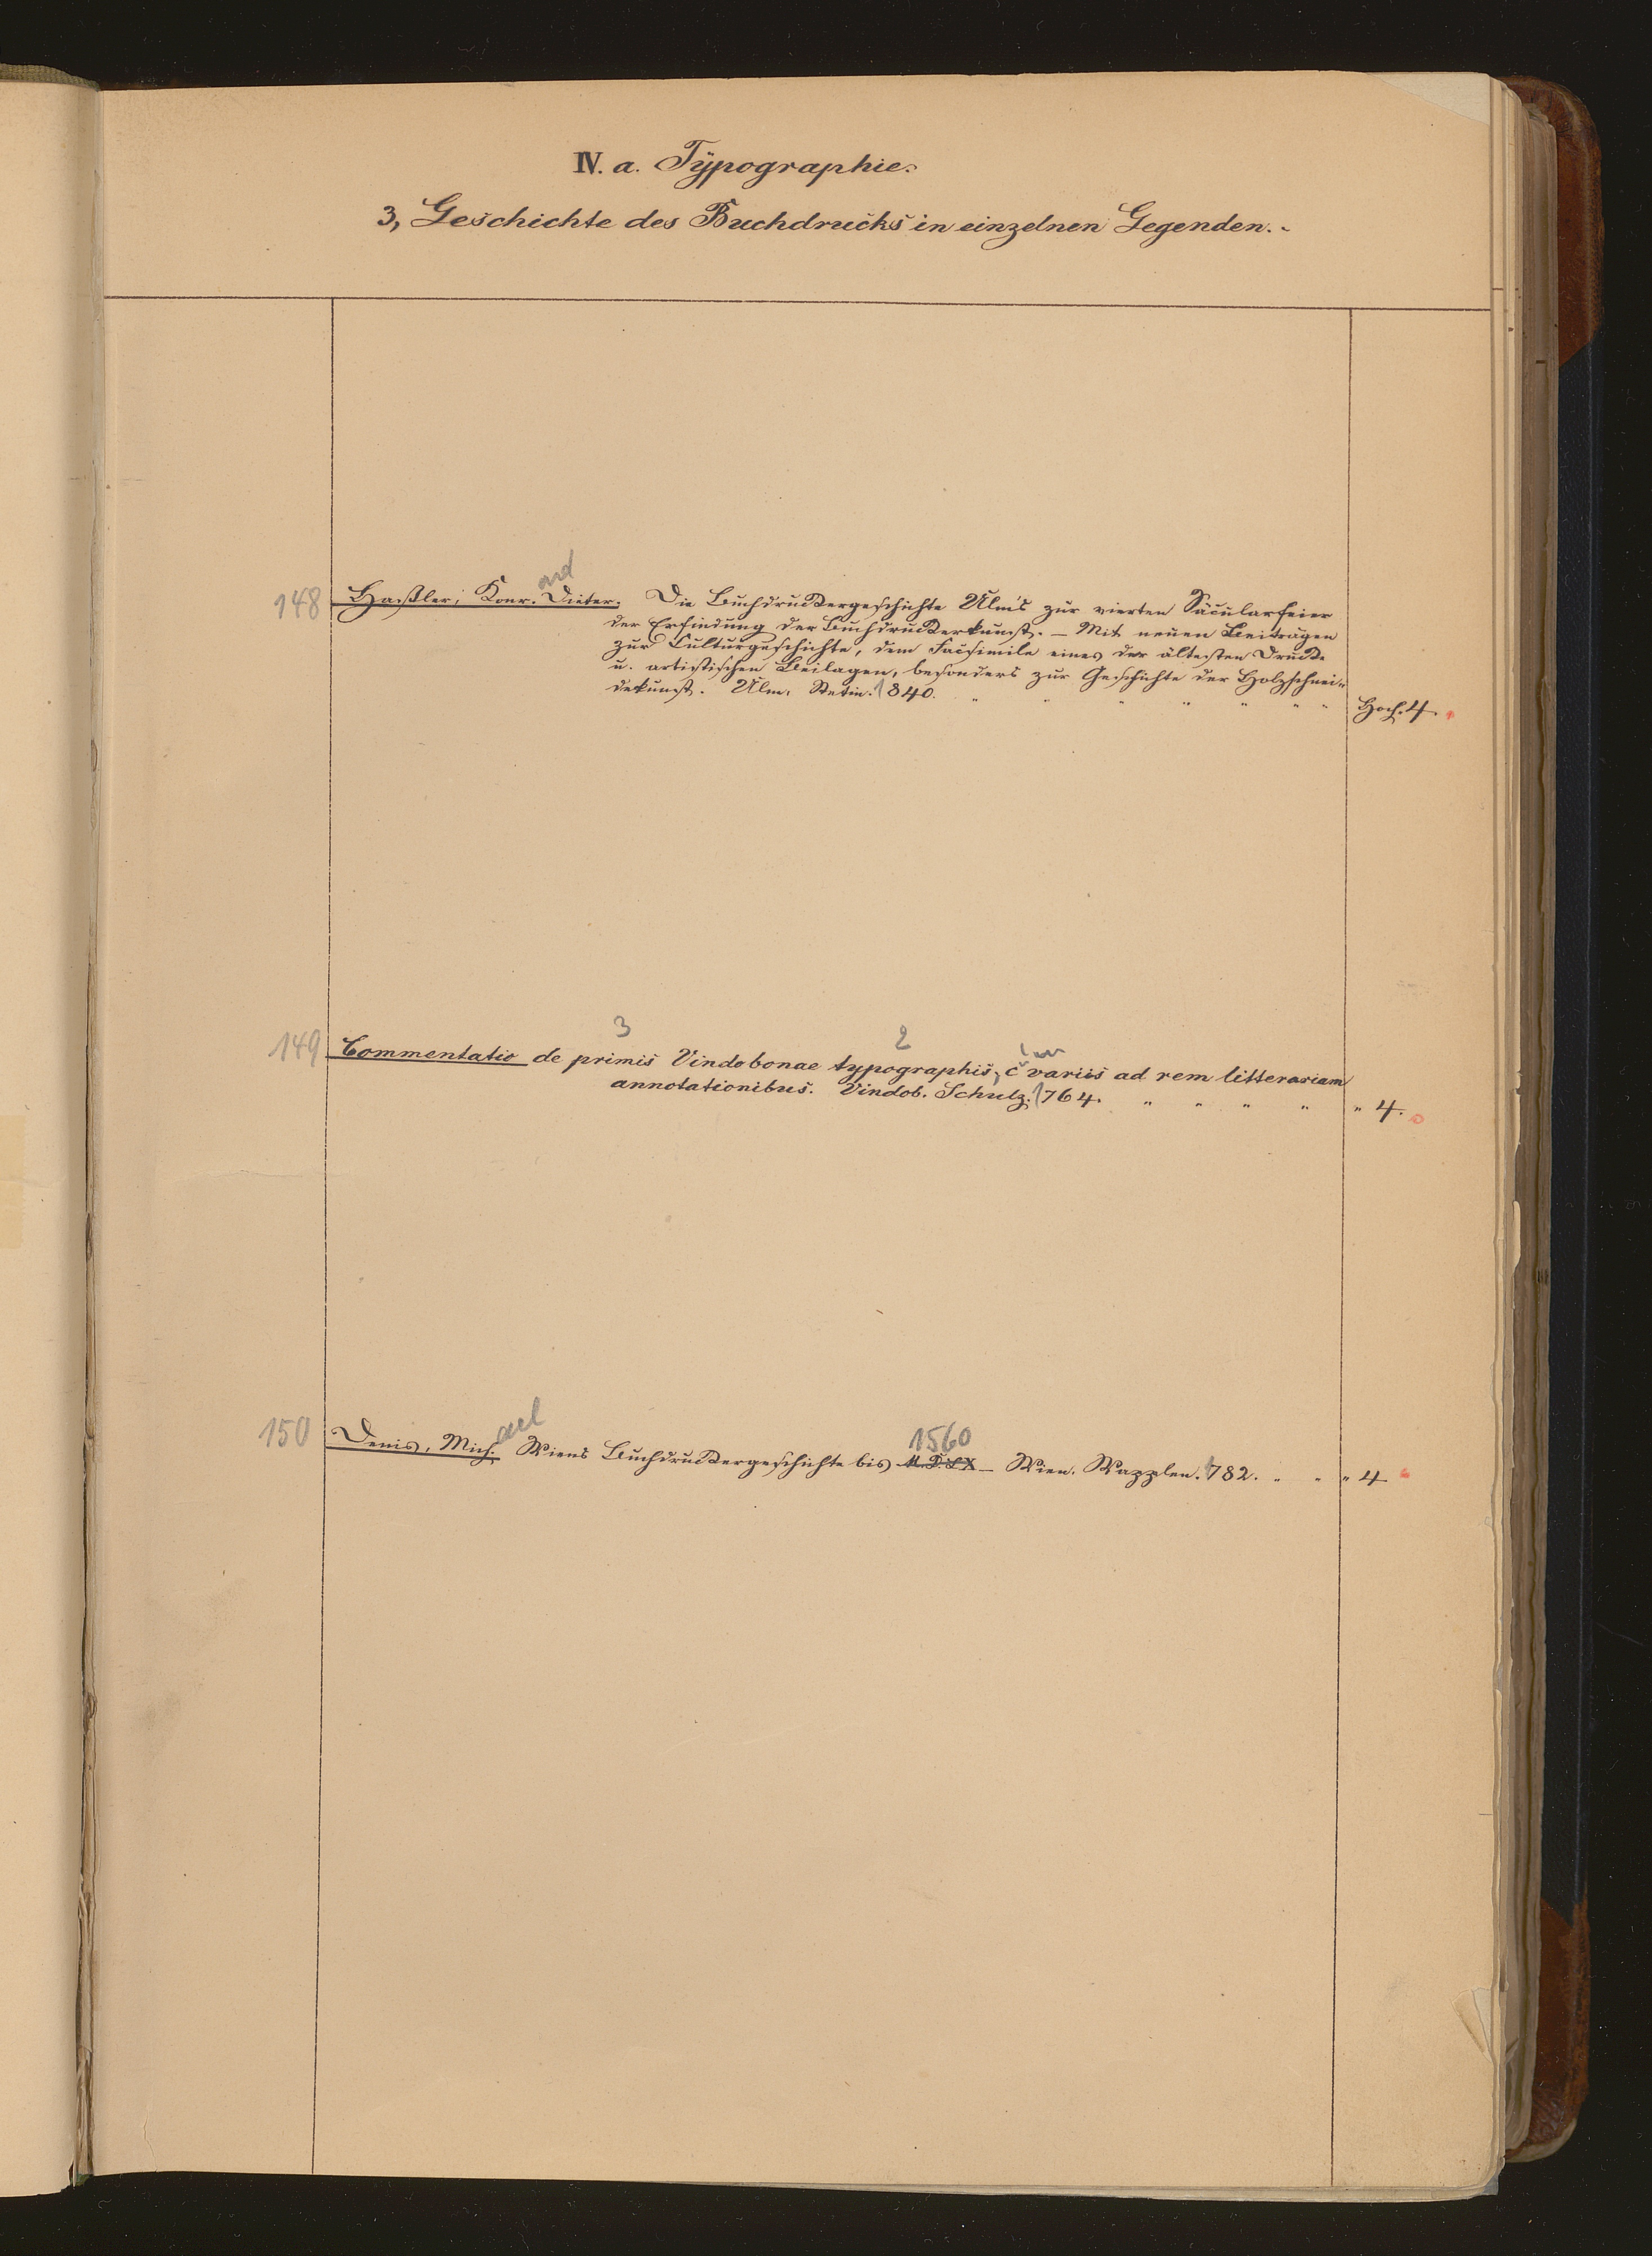 IV. a. Typographie.
3, Geschichte des Buchdrucks in einzelnen Gegenden.
ard
148 Haßler, Konr. Dieter. Die Buchdruckergeschichte Ulm's zur vierten Säcularfeier
der Erfindung der Buchdruckerkunst. — Mit neuen Beiträgen
zur Culturgeschichte, dem Facsimile eines der ältesten Drucke
u. artistischen Beilagen, besonders zur Geschichte der Holzschnei-
dekunst. Ulm, Stetin. 1840. " " " " " " " Hoch. 4.
3 2 um
149 Commentatio de primis Vindobonae typographis, c variis ad rem litterariam
annotationibus. Vindob. Schulz. 1764. " " " " " 4.
ael 1560
150 Denis, Mich. Wiens Buchdruckergeschichte bis M.D.LX — Wien. Wappler. 1782. " " " 4